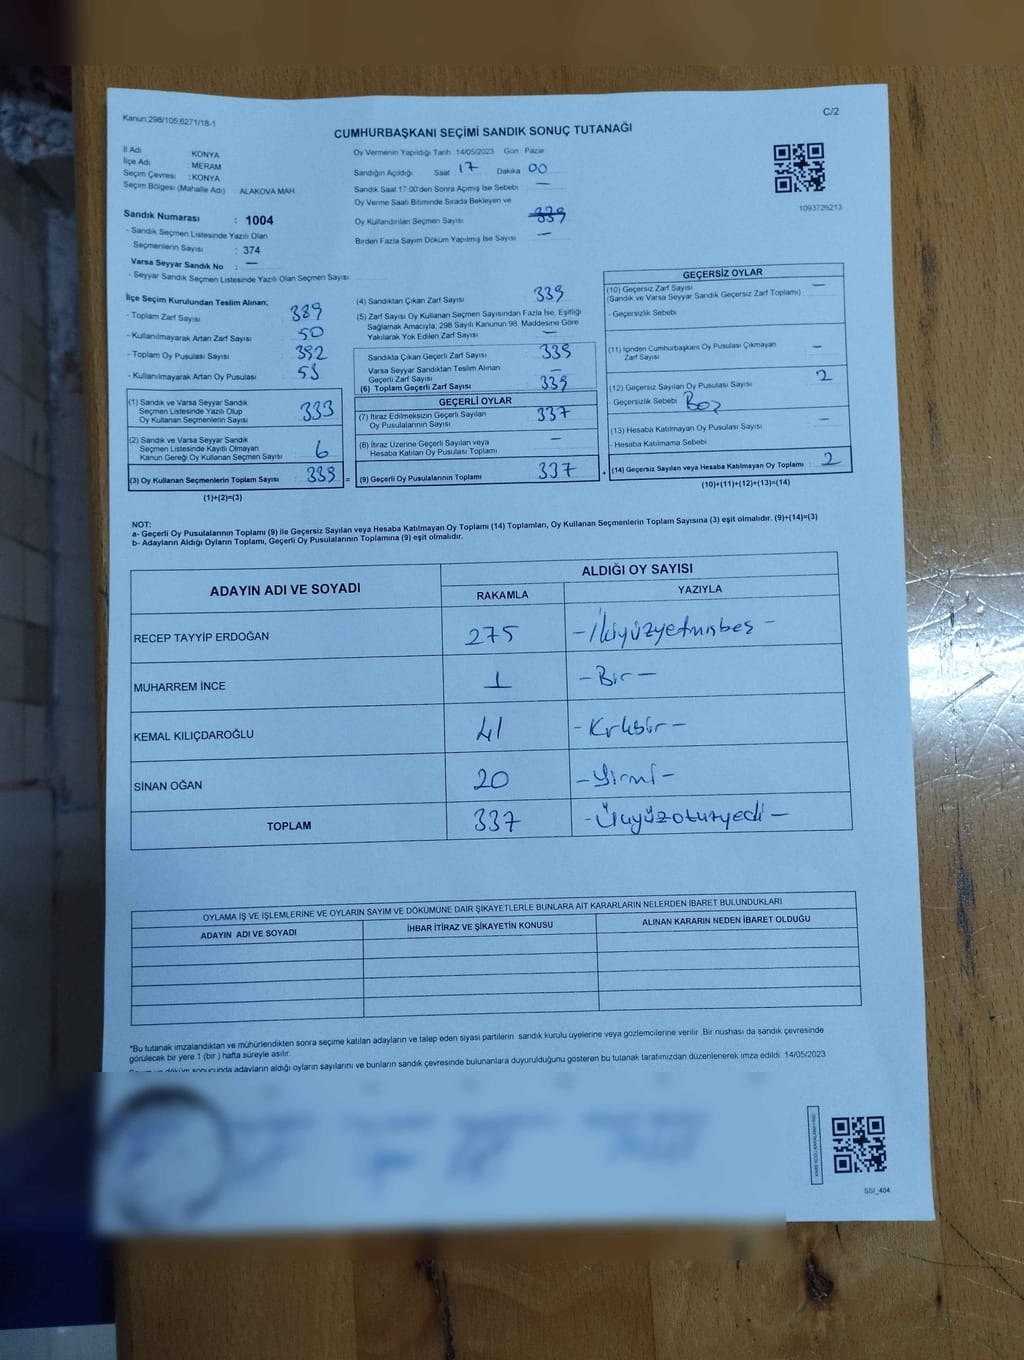 Kanun;298/105;6271/18-1
C/2
CUMHURBAŞKANI SEÇİMİ SANDIK SONUÇ TUTANAĞI
İl Adı KONYA
İlçe Adı : MERAM
Seçim Çevresi : KONYA
Seçim Bölgesi (Mahalle Adı) ALAKOVA MAH
Sandık Numarası : 1004
- Sandık Seçmen Listesinde Yazılı Olan
Seçmenlerin Sayısı : 374
Varsa Seyyar Sandık No : —
- Seyyar Sandık Seçmen Listesinde Yazılı Olan Seçmen Sayısı
Oy Vermenin Yapıldığı Tarih 14/05/2023 Gün : Pazar
Sandığın Açıldığı Saat 17 Dakika 00
Sandık Saat 17.00'den Sonra Açılmış İse Sebebi —
Oy Verme Saati Bitiminde Sırada Bekleyen ve
Oy Kullandırılan Seçmen Sayısı
Birden Fazla Sayım Döküm Yapılmış İse Sayısı —
1093726213
İlçe Seçim Kurulundan Teslim Alınan;
- Toplam Zarf Sayısı 389
- Kullanılmayarak Artan Zarf Sayısı 50
- Toplam Oy Pusulası Sayısı 392
- Kullanılmayarak Artan Oy Pusulası 53
(1) Sandık ve Varsa Seyyar Sandık
Seçmen Listesinde Yazılı Olup
Oy Kullanan Seçmenlerin Sayısı 333
(2) Sandık ve Varsa Seyyar Sandık
Seçmen Listesinde Kayıtlı Olmayan
Kanun Gereği Oy Kullanan Seçmen Sayısı 6
(3) Oy Kullanan Seçmenlerin Toplam Sayısı 339 =
(1)+(2)=(3)
(4) Sandıktan Çıkan Zarf Sayısı 339
(5) Zarf Sayısı Oy Kullanan Seçmen Sayısından Fazla İse, Eşitliği
Sağlamak Amacıyla; 298 Sayılı Kanunun 98. Maddesine Göre
Yakılarak Yok Edilen Zarf Sayısı —
Sandıkta Çıkan Geçerli Zarf Sayısı 339
Varsa Seyyar Sandıktan Teslim Alınan
Geçerli Zarf Sayısı —
(6) Toplam Geçerli Zarf Sayısı 339
GEÇERLİ OYLAR
(7) İtiraz Edilmeksizin Geçerli Sayılan
Oy Pusulasının Sayısı 337
(8) İtiraz Üzerine Geçerli Sayılan veya
Hesaba Katılan Oy Pusulası Toplamı —
(9) Geçerli Oy Pusulalarının Toplamı 337 +
GEÇERSİZ OYLAR
(10) Geçersiz Zarf Sayısı —
(Sandık ve Varsa Seyyar Sandık Geçersiz Zarf Toplamı)
- Geçersizlik Sebebi
(11) İçinden Cumhurbaşkanı Oy Pusulası Çıkmayan —
Zarf Sayısı
(12) Geçersiz Sayılan Oy Pusulası Sayısı 2
- Geçersizlik Sebebi Boş
(13) Hesaba Katılmayan Oy Pusulası Sayısı —
- Hesaba Katılmama Sebebi
(14) Geçersiz Sayılan veya Hesaba Katılmayan Oy Toplamı 2
(10)+(11)+(12)+(13)=(14)
NOT:
a- Geçerli Oy Pusulalarının Toplamı (9) ile Geçersiz Sayılan veya Hesaba Katılmayan Oy Toplamı (14) Toplamları, Oy Kullanan Seçmenlerin Toplam Sayısına (3) eşit olmalıdır. (9)+(14)=(3)
b- Adayların Aldığı Oyların Toplamı, Geçerli Oy Pusulalarının Toplamına (9) eşit olmalıdır.
ADAYIN ADI VE SOYADI ALDIĞI OY SAYISI
RAKAMLA YAZIYLA
RECEP TAYYİP ERDOĞAN 275 - İkiyüzyetmişbeş -
MUHARREM İNCE 1 - Bir -
KEMAL KILIÇDAROĞLU 41 - Kırkbir -
SİNAN OĞAN 20 - Yirmi -
TOPLAM 337 - Üçyüzotuzyedi -
OYLAMA İŞ VE İŞLEMLERİNE VE OYLARIN SAYIM VE DÖKÜMÜNE DAİR ŞİKAYETLERLE BUNLARA AİT KARARLARIN NELERDEN İBARET BULUNDUKLARI
ADAYIN ADI VE SOYADI İHBAR İTİRAZ VE ŞİKAYETİN KONUSU ALINAN KARARIN NEDEN İBARET OLDUĞU
*Bu tutanak imzalandıktan ve mühürlendikten sonra seçime katılan adayların ve talep eden siyasi partilerin sandık kurulu üyelerine veya gözlemcilerine verilir. Bir nüshası da sandık çevresinde
görülecek bir yere 1 (bir) hafta süreyle asılır.
döküm sonucunda adayların aldığı oyların sayılarını ve bunların sandık çevresinde bulunanlara duyurulduğunu gösteren bu tutanak tarafımızdan düzenlenerek imza edildi. 14/05/2023
SSI_404